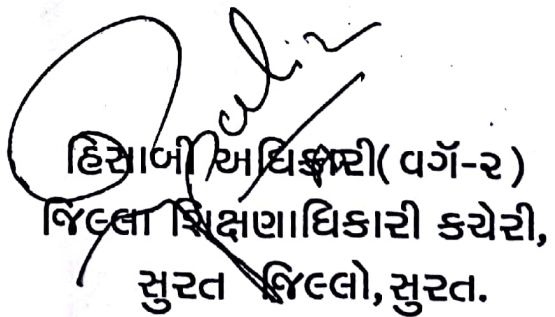 હિસાબી અધિકારી( વર્ગ-૨ )
જિલ્લા શિક્ષણાધિકારી કચેરી,
સુરત જિલ્લો, સુરત.